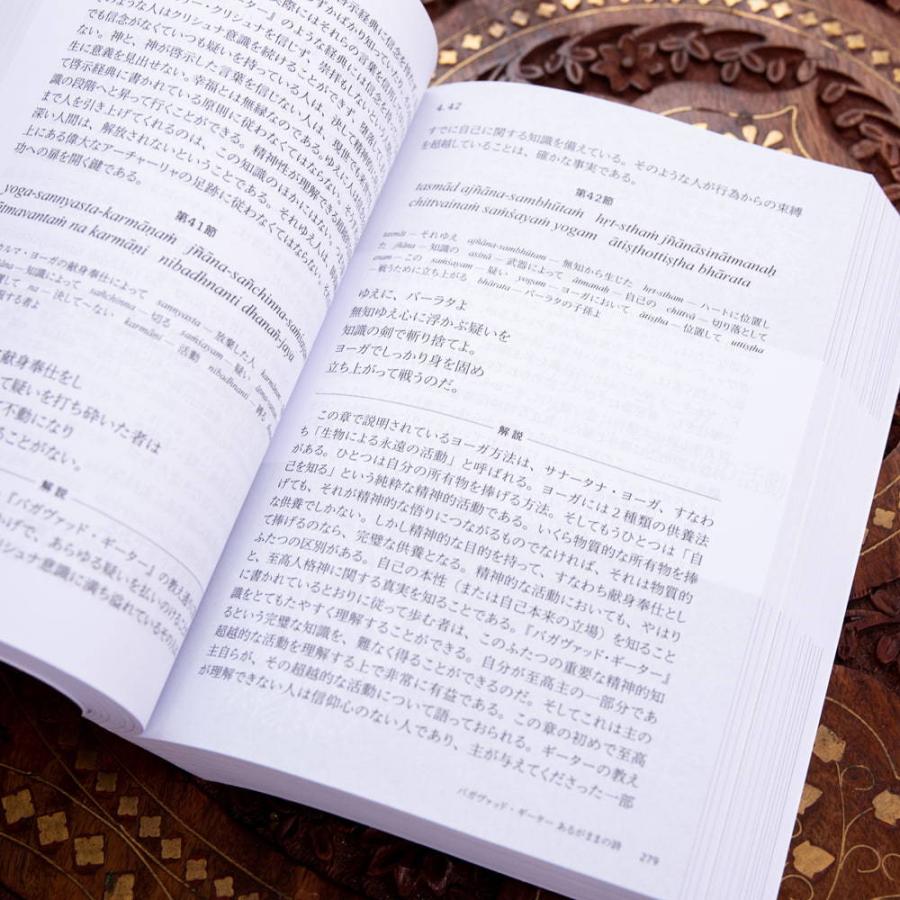 ような人はクリシュナ意識を続けることができず、堕落
でも信念がなくていつも疑いを持っている人は、決して精神的
ない。神と、神が啓示した言葉を信じない人は、現世でも
生に意義を見出せない。幸福とは無縁なのである。ゆえに人は
て啓示経典に書かれている原則に従わなくてはならない。
識の段階へと昇って行くことができる。精神性が理解できる
まで人を引き上げてくれるのは、この知識のほかにはない。
深い人間は、解放されないということである。それゆえ人は、
上にある偉大なアーチャーリャの足跡に従わなくてはならない。
功への扉を開く鍵である。
第41節
yoga-sannyasta-karmāṇaṁ jñāna-sañchinna-saṁśayam
ātmavantaṁ na karmāṇi nibadhnanti dhanañ-jaya
カルマ・ヨーガの献身奉仕によって sannyasta — 放棄した人 karmāṇam
知識によって sañchinna — 切る saṁśayam — 疑い
na — 決して〜ない karmāṇi — 活動 nibadhnanti
する者よ
献身奉仕をし
て疑いを打ち砕いた者は
不動になり
ることがない。
解説
『バガヴァッド・ギーター』の教え
かげで、あらゆる疑いを払いのける
リシュナ意識に満ち溢れている
4.42
すでに自己に関する知識を備えている。そのような人が行為からの束縛
を超越していることは、確かな事実である。
第42節
tasmād ajñāna-sambhūtaṁ hṛt-sthaṁ jñānāsinātmanaḥ
chittvainaṁ saṁśayaṁ yogam ātiṣṭhottiṣṭha bhārata
tasmāt — それゆえ ajñāna-sambhūtam — 無知から生じた hṛt-stham — ハートに位置し
た jñāna — 知識の asinā — 武器によって ātmanaḥ — 自己の chittvā — 切り落として
enam — この saṁśayam — 疑い yogam — ヨーガにおいて ātiṣṭha — 位置して uttiṣṭha
— 戦うために立ち上がる bhārata — バーラタの子孫よ
ゆえに、バーラタよ
無知ゆえ心に浮かぶ疑いを
知識の剣で斬り捨てよ。
ヨーガでしっかり身を固め
立ち上がって戦うのだ。
解説
この章で説明されているヨーガ方法は、サナータナ・ヨーガ、すなわ
ち「生物による永遠の活動」と呼ばれる。ヨーガには2種類の供養法
がある。ひとつは自分の所有物を捧げる方法。そしてもうひとつは「自
己を知る」という純粋な精神的活動である。いくら物質的な所有物を捧
げても、それが精神的な悟りにつながるものでなければ、それは物質的
な供養でしかない。しかし精神的な目的を持って、すなわち献身奉仕とし
て捧げるのなら、完璧な供養となる。精神的な活動においても、やはり
ふたつの区別がある。自己の本性（または自己本来の立場）を知ること
と、至高人格神に関する真実を知ることである。『バガヴァッド・ギーター』
に書かれているとおりに従って歩む者は、このふたつの重要な精神的知
識をとてもたやすく理解することができる。自分が至高主の一部分であ
るという完璧な知識を、難なく得ることができるのだ。そしてこれは主の
超越的な活動を理解する上で非常に有益である。この章の初めで至高
主自らが、その超越的な活動について語っておられる。ギーターの教え
が理解できない人は信仰心のない人であり、主が与えてくださった一部
バガヴァッド・ギーター あるがままの詩
279